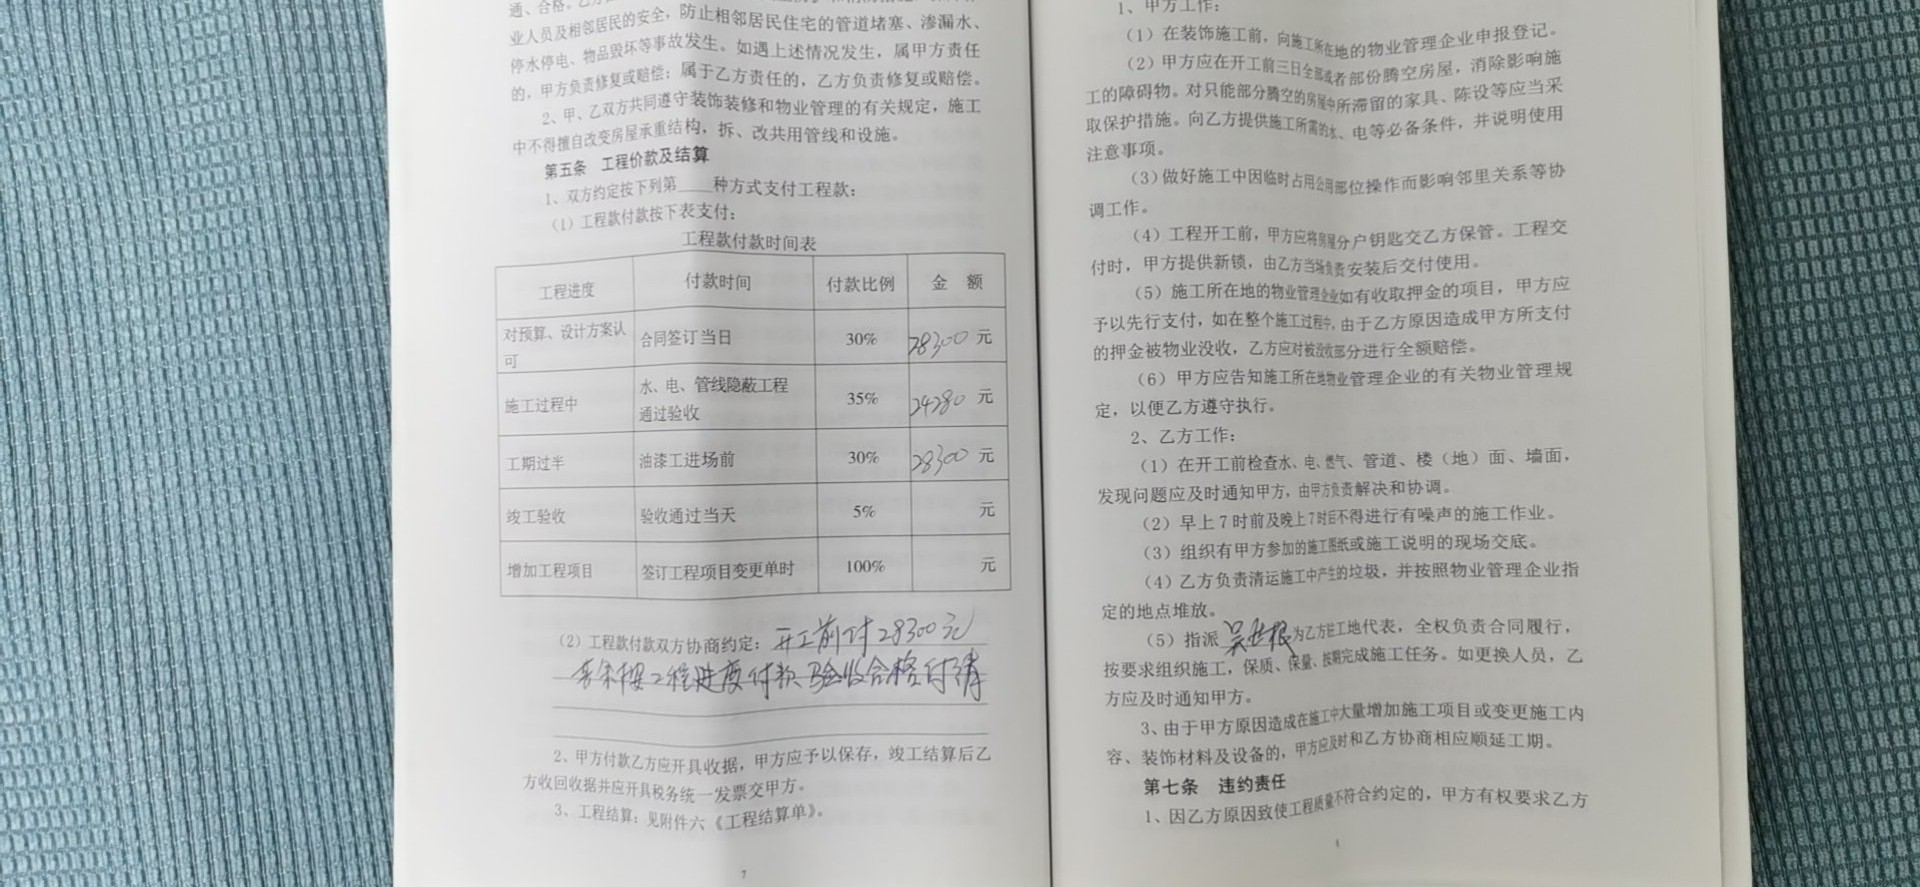 业人员及相邻居民的安全，防止相邻居民住宅的管道堵塞、渗漏水、
停水停电、物品毁坏等事故发生。如遇上述情况发生，属甲方责任
的，甲方负责修复或赔偿；属于乙方责任的，乙方负责修复或赔偿。
2、甲、乙双方共同遵守装饰装修和物业管理的有关规定，施工
中不得擅自改变房屋承重结构，拆、改共用管线和设施。
第五条 工程价款及结算
1、双方约定按下列第____种方式支付工程款：
（1）工程款付款按下表支付：
工程款付款时间表
工程进度 付款时间 付款比例 金 额
对预算、设计方案认可 合同签订当日 30% 28300 元
施工过程中 水、电、管线隐蔽工程通过验收 35% 24280 元
工期过半 油漆工进场前 30% 28300 元
竣工验收 验收通过当天 5% 元
增加工程项目 签订工程项目变更单时 100% 元
（2）工程款付款双方协商约定：开工前付28300元
工程进度付款 验收合格付清
2、甲方付款乙方应开具收据，甲方应予以保存，竣工结算后乙
方收回收据并应开具税务统一发票交甲方。
3、工程结算：见附件六《工程结算单》。
7
1、甲方工作：
（1）在装饰施工前，向施工所在地的物业管理企业申报登记。
（2）甲方应在开工前三日全部或者部份腾空房屋，消除影响施
工的障碍物。对只能部分腾空的房屋中所滞留的家具、陈设等应当采
取保护措施。向乙方提供施工所需的水、电等必备条件，并说明使用
注意事项。
（3）做好施工中因临时占用公用部位操作而影响邻里关系等协
调工作。
（4）工程开工前，甲方应将房屋分户钥匙交乙方保管。工程交
付时，甲方提供新锁，由乙方当场负责安装后交付使用。
（5）施工所在地的物业管理企业如有收取押金的项目，甲方应
予以先行支付，如在整个施工过程中，由于乙方原因造成甲方所支付
的押金被物业没收，乙方应对被没收部分进行全额赔偿。
（6）甲方应告知施工所在地物业管理企业的有关物业管理规
定，以便乙方遵守执行。
2、乙方工作：
（1）在开工前检查水、电、燃气、管道、楼（地）面、墙面，
发现问题应及时通知甲方，由甲方负责解决和协调。
（2）早上7时前及晚上7时后不得进行有噪声的施工作业。
（3）组织有甲方参加的施工图纸或施工说明的现场交底。
（4）乙方负责清运施工中产生的垃圾，并按照物业管理企业指
定的地点堆放。
（5）指派 为乙方驻工地代表，全权负责合同履行，
按要求组织施工，保质、保量、按期完成施工任务。如更换人员，乙
方应及时通知甲方。
3、由于甲方原因造成在施工中大量增加施工项目或变更施工内
容、装饰材料及设备的，甲方应及时和乙方协商相应顺延工期。
第七条 违约责任
1、因乙方原因致使工程质量不符合约定的，甲方有权要求乙方